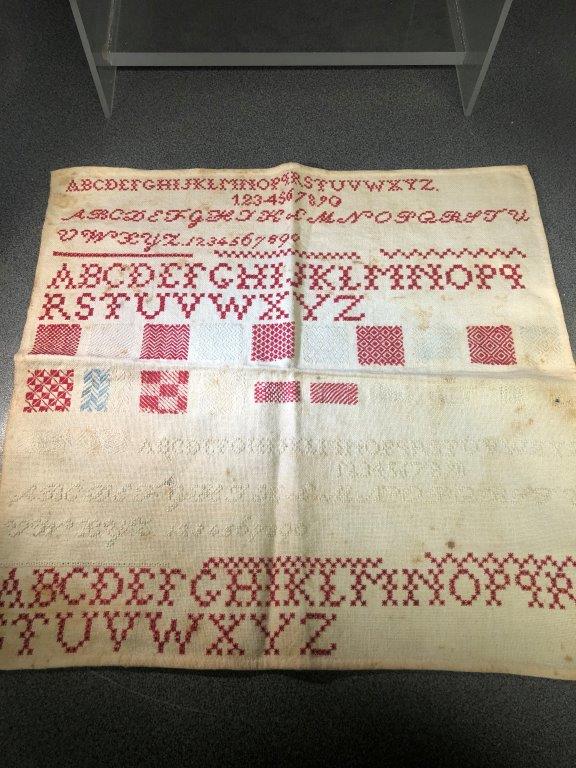 ABCDEFGHIJKLMNOPQRSTUVWXYZ.
1234567890
ABCDEFGHIJKLMNOPQRSTU
VWXYZ.1234567890
ABCDEFGHIJKLMNOPQ
RSTUVWXYZ
ABCDEFGHIJKLMNOPQRSTUVWXY
ABCDEFGHIKLMNOPQR
STUVWXYZ